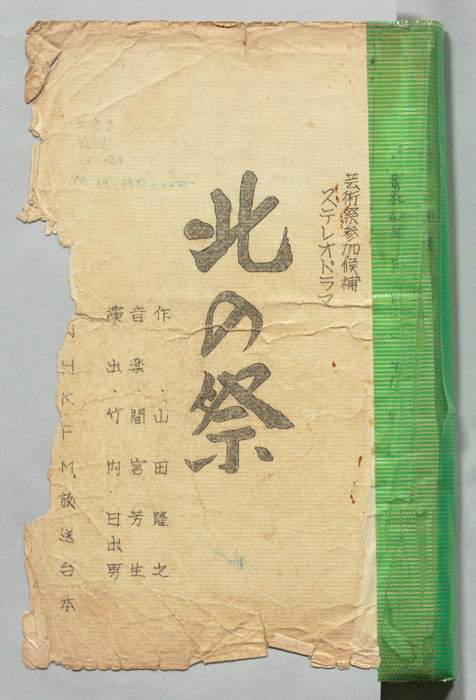 芸術祭参加候補
ステレオドラマ
北の祭
作・山田隆之
音楽 間宮芳生
演出・竹内日出男
NHKFM放送台本